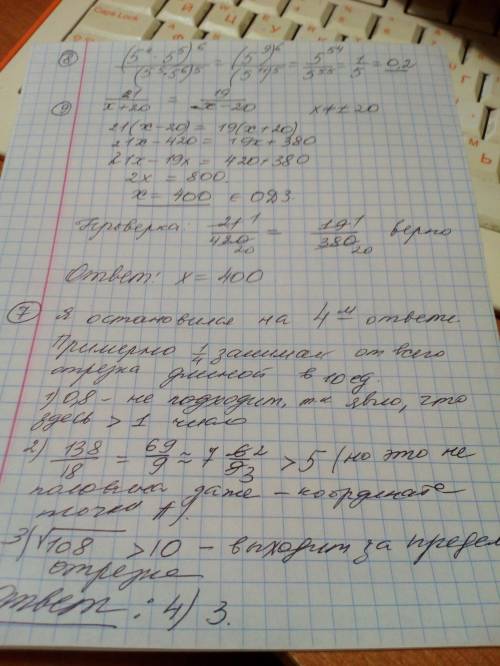 ⑧ (5⁴ · 5⁵)⁶ / (5⁵·5⁶)⁵ = (5⁹)⁶ / (5¹¹)⁵ = 5⁵⁴ / 5⁵⁵ = 1/5 = 0,2
⑨ 21/(x+20) = 19/(x-20) x≠±20
21(x-20) = 19(x+20)
21x-420 = 19x+380
21x-19x = 420+380
2x = 800
x = 400 ∈ ОДЗ.
Проверка: 21¹/420₂₀ = 19¹/380₂₀ верно
Ответ: x = 400
⑦ Я остановился на 4м ответе.
Примерно 1/4 занимает от всего
отрезка длиной в 10 ед.
1) 0,8 - не подходит, тк явно, что
здесь > 1 число
2) 138/18 = 69/9 ≈ 7 6²/9₃ > 5 (но это не
половина даже - координата
точки A)
3) √108 > 10 - выходит за предел
отрезка
Ответ: 4) 3.